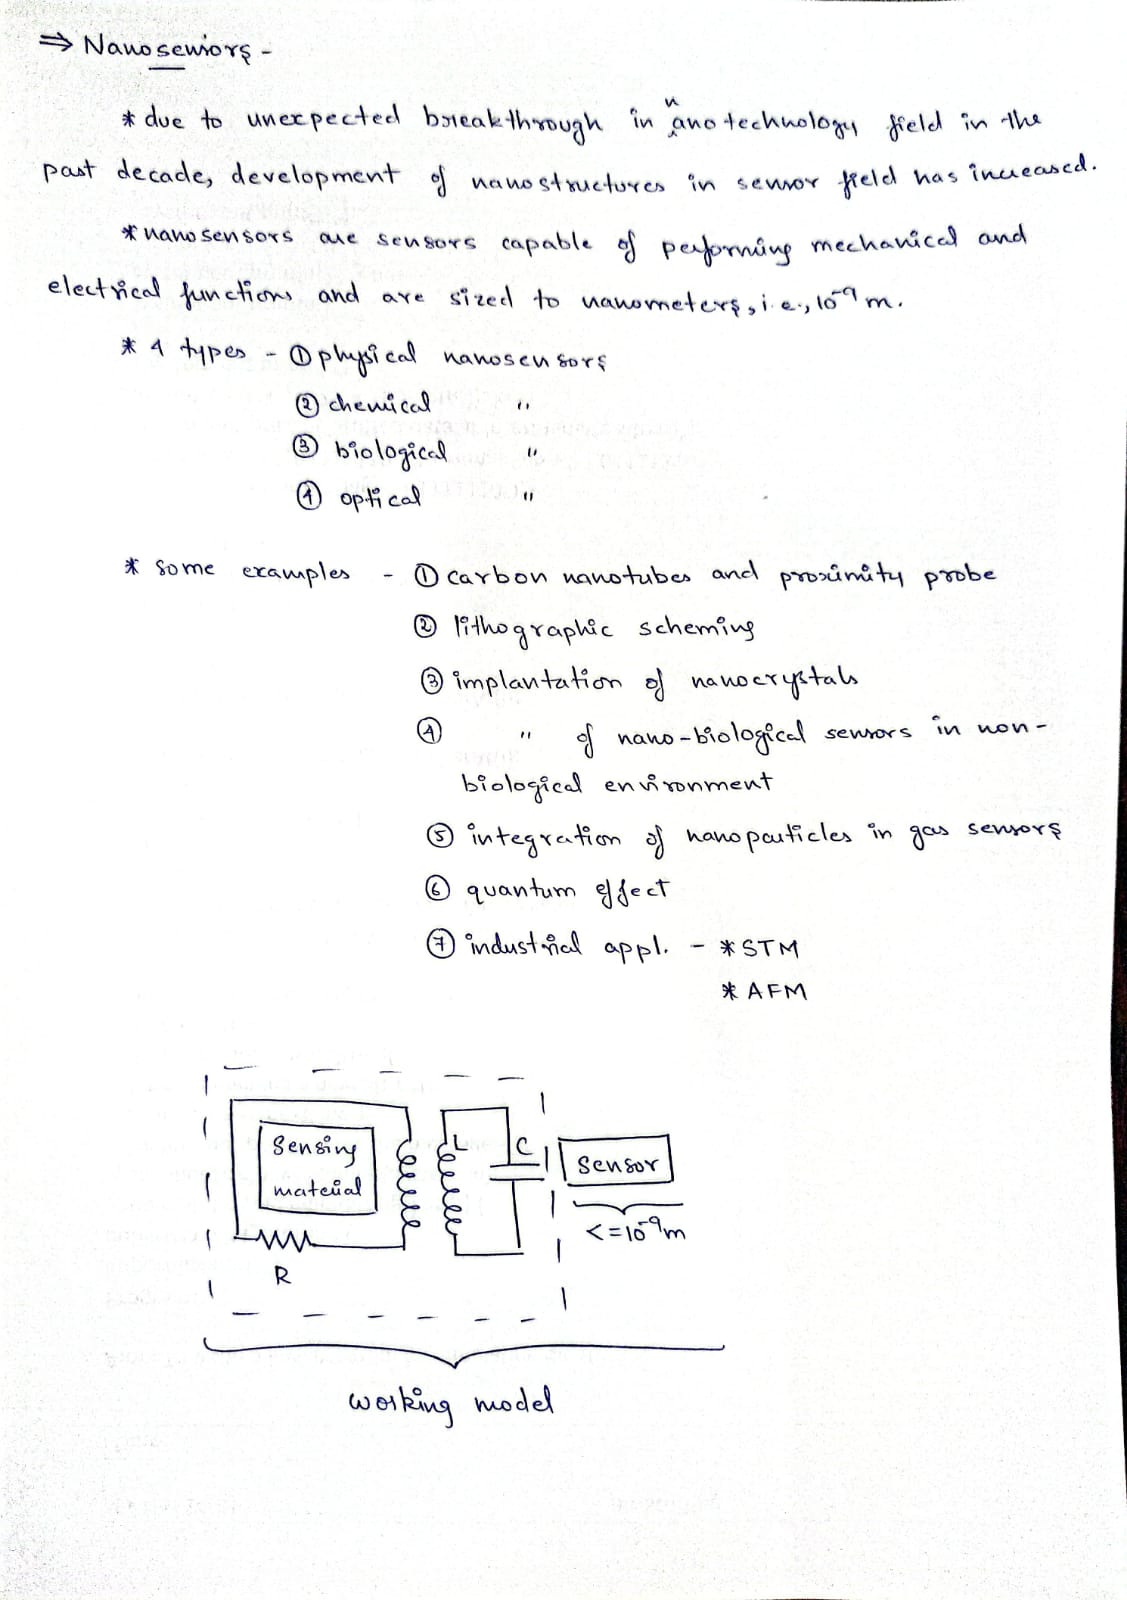 ⇒ Nanosensors -
* due to unexpected breakthrough in nanotechnology field in the
past decade, development of nanostructures in sensor field has increased.
* nanosensors are sensors capable of performing mechanical and
electrical functions and are sized to nanometers, i.e., 10⁻⁹ m.
* 4 types - ① physical nanosensors
② chemical "
③ biological "
④ optical "
* some examples - ① carbon nanotubes and proximity probe
② lithographic scheming
③ implantation of nanocrystals
④ " of nano-biological sensors in non-
biological environment
⑤ integration of nanoparticles in gas sensors
⑥ quantum effect
⑦ industrial appl. - * STM
* AFM
Sensing
material
R
L
C
Sensor
<=10⁻⁹m
working model